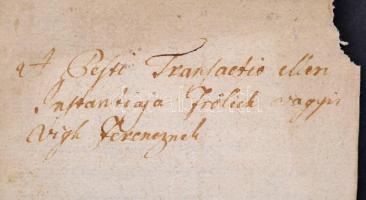 A Pesti Transactio ellen
Instantiaja Frölich vagyis
Vigh Ferencznek